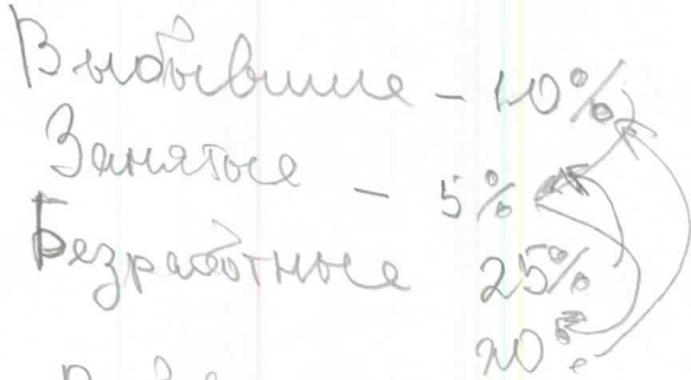 Выбывшие - 10%
Занятые - 5%
Безработные 25%
20%